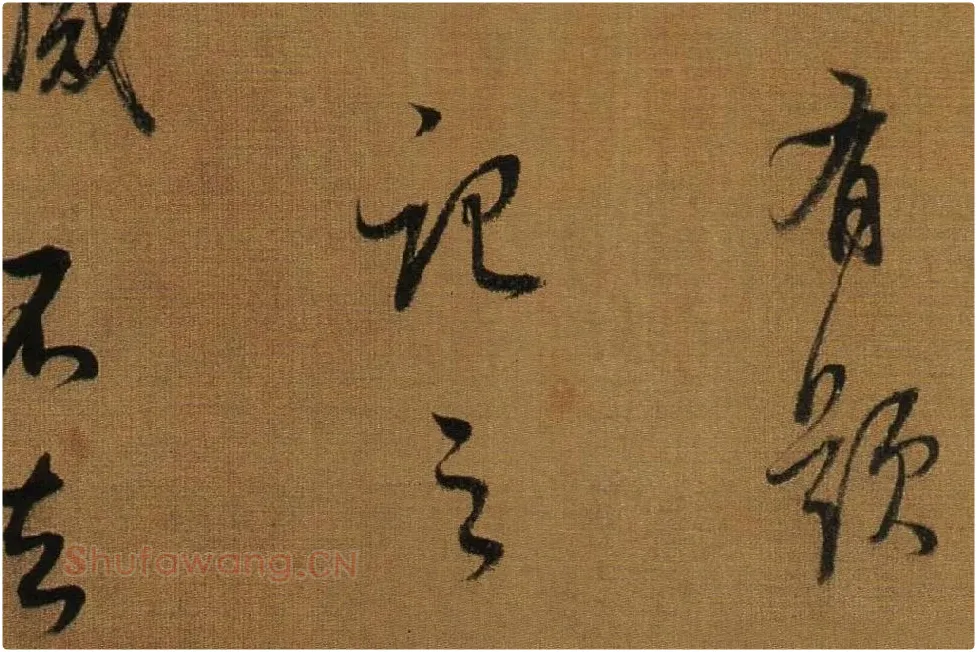 有題
記之
不去
Shufawang.CN